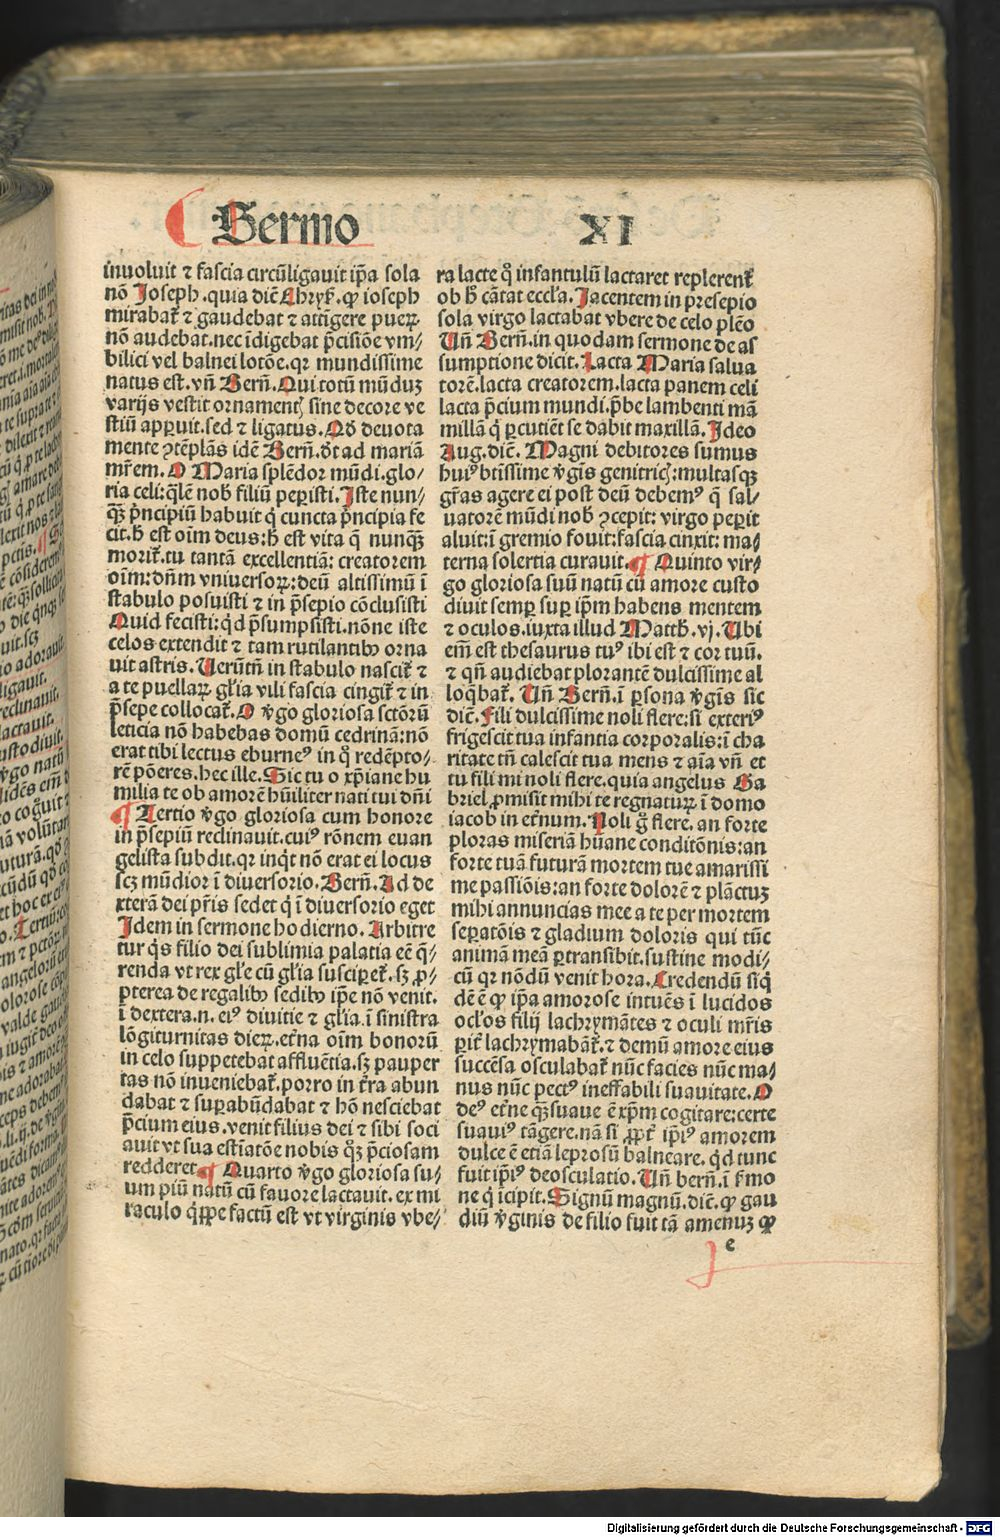 Sermo XI
inuoluit ⁊ fascia circūligauit ip̄a sola
nō Joseph.quia dic̄ Chryẜ.ꝙ ioseph
mirabat᷑ ⁊ gaudebat ⁊ attīgere pueꝝ
nō audebat.nec īdigebat p̄cisiōe vm-
bilici vel balnei lotōe.qꝛ mundissime
natus est.vn̄ Bern̄.Qui totū mūduꝫ
varijs vestit ornamentꝭ sine decore ve
stiū apꝑuit.sed ⁊ ligatus.Qd̄ deuota
mente ꝯtēplās idē Bern̄.dt̄ ad mariā
mr̄em.O Maria splēdor mūdi.glo-
ria celi:qͣlē nob̄ filiū peꝑisti.Iste nun-
qꝫ pͥncipiū habuit qͥ cuncta pͥncipia fe
cit.h̄ est oīm deus:h̄ est vita q̄ nunqꝫ
morit᷑.tu tantā excellentiā: creatorem
oīm:dn̄m vniuersoꝝ:deū altissimū ī
stabulo posuisti ⁊ in p̄sepio cōclusisti
Quid fecisti:qd p̄sumpsisti.nōne iste
celos extendit ⁊ tam rutilantibꝰ orna
uit astris. Uerūtn̄ in stabulo nascit᷑ ⁊
a te puellaꝝ gl̄ia vili fascia cingit᷑ ⁊ in
p̄sepe collocat᷑.O v̄go gloriosa sctōrū
leticia nō habebas domū cedrinā:nō
erat tibi lectus eburneꝰ in q̊ redēpto-
rē pōeres.hec ille.Sic tu o xp̄iane hu
milia te ob amorē hūiliter nati tui dn̄i
¶ Tertio v̄go gloriosa cum honore
in p̄sepiū reclinauit.cuiꝰ rōnem euan
gelista subdit.qꝛ inqͥt nō erat ei locus
scꝫ mūdior ī diuersorio.Bern̄.Ad de
xterā dei pr̄is sedet qͥ ī diuersorio eget
Idem in sermone hodierno.Arbitre
tur qͥs filio dei sublimia palatia eē q̄-
renda vt rex gl̄e cū gl̄ia susciꝑet᷑.sꝫ ꝓ-
pterea de regalibꝰ sedibꝰ ip̄e nō venit.
ī dextera.n.eiꝰ diuitie ⁊ gl̄ia.ī sinistra
lōgiturnitas dieꝝ.et̄na oīm bonorū
in celo suppetebat affluētia.sꝫ pauper
tas nō inueniebat᷑.porro in tr̄ra abun
dabat ⁊ suꝑabūdabat ⁊ hō nesciebat
p̄cium eius.venit filius dei ⁊ sibi soci
auit vt sua estīatōe nobis qꝫ p̄ciosam
redderet.¶ Quarto v̄go gloriosa su-
um piū natū cū fauore lactauit.ex mi
raculo qͥꝑpe factū est vt virginis vbe-
ra lacte q̊ infantulū lactaret replerent᷑
ob h̄ cātat eccl̄a.Jacentem in presepio
sola virgo lactabat vbere de celo plēo
Un̄ Bern̄.in quodam sermone de as
sumptione dicit.Lacta Maria salua
torē.lacta creatorem.lacta panem celi
lacta p̄cium mundi.p̄be lambenti mā
millā qͥ ꝑcutiēt se dabit maxillā.Ideo
Aug.dic̄. Magni debitores sumus
huiꝰ btīssime v̄gīs genitricꝭ:multasqꝫ
gr̄as agere ei post deū debemꝰ q̄ sal-
uatorē mūdi nob̄ ꝯcepit: virgo peꝑit
aluit:ī gremio fouit:fascia cinxit: ma-
terna solertia curauit.¶ Quinto vir-
go gloriosa suū natū cū amore custo
diuit semꝑ suꝑ ip̄m habens mentem
⁊ oculos.iuxta illud Matth.vj.Ubi
em̄ est thesaurus tuꝰ ibi est ⁊ cor tuū.
⁊ qn̄ audiebat plorantē dulcissime al
loqͣbat᷑. Un̄ Bern̄.ī ꝑsona v̄gīs sic
dic̄.Fili dulcissime noli flere:si exteriꝰ
frigescit tua infantia corporalis:ī cha
ritate tn̄ calescit tua mens ⁊ aīa vn̄ et
tu fili mi noli flere.quia angelus Ga
briel ꝓmisit mihi te regnatuꝝ ī domo
iacob in et̄num.Noli g̊ flere.an forte
ploras miseriā hūane conditōnis:an
forte tuā futurā mortem tue amarissi
me passiōis:an forte dolorē ⁊ plāctuꝫ
mihi annuncias mee a te per mortem
seꝑatōis ⁊ gladium doloris qui tūc
animā meā ꝑtransibit.sustine modi-
cū qꝛ nōdū venit hora.Credendū siqͥ
dē ē ꝙ ip̄a amorose intuēs ī lucidos
ocl̄os filij lachrymātes ⁊ oculi mr̄is
ꝑit᷑ lachrymabāt᷑.⁊ demū amore eius
succēsa osculabat᷑ nūc facies nūc ma-
nus nūc pectꝰ ineffabili suauitate.O
deꝰ et̄ne qꝫsuaue ē xp̄m cogitare:certe
suauiꝰ tāgere.nā si ꝓpt᷑ ip̄iꝰ amorem
dulce ē etiā leprosū balneare.qͥd tunc
fuit ip̄iꝰ deosculatio.Un̄ bern̄.ī ẜmo
ne qͥ īcipit.Signū magnū.dic̄.ꝙ gau
diū v̄ginis de filio fuit tā amenuꝫ ꝙ
e
Digitalisierung gefördert durch die Deutsche Forschungsgemeinschaft - DFG